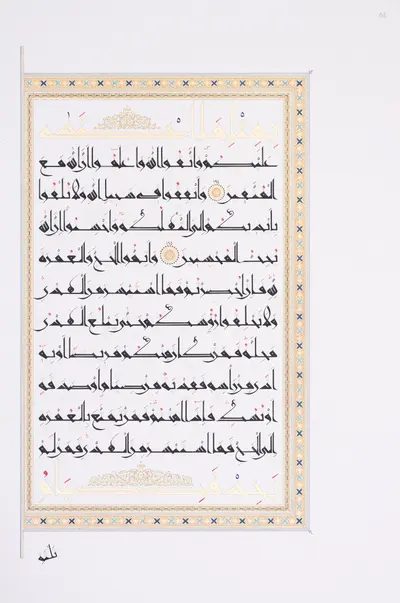 بمثل ما اعتدى
عليكم واتقوا الله واعلموا أن الله مع
المتقين وأنفقوا في سبيل الله ولا تلقوا
بأيديكم إلى التهلكة وأحسنوا إن الله
يحب المحسنين وأتموا الحج والعمرة
لله فإن أحصرتم فما استيسر من الهدي
ولا تحلقوا رءوسكم حتى يبلغ الهدي
محله فمن كان منكم مريضا أو به
أذى من رأسه ففدية من صيام أو صدقة
أو نسك فإذا أمنتم فمن تمتع بالعمرة
إلى الحج فما استيسر من الهدي فمن لم
يجد فصيام
ثلثة